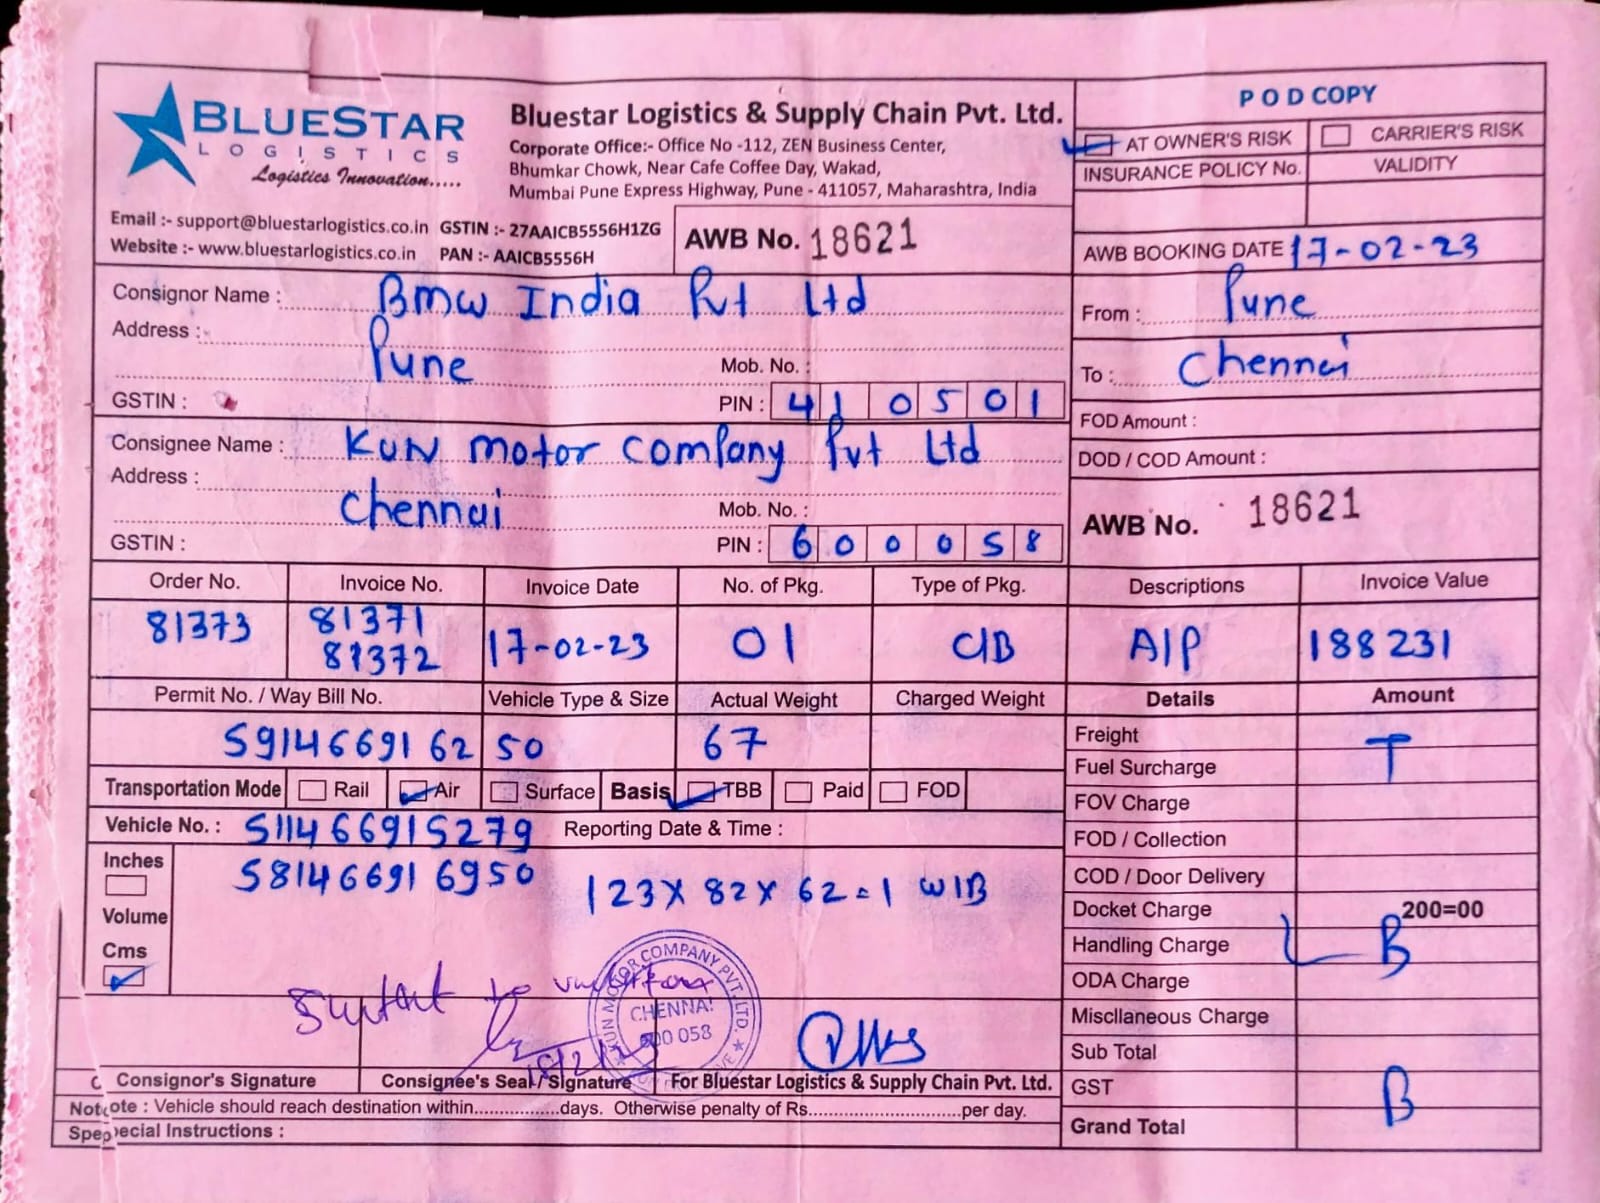 BLUESTAR
LOGISTICS
Logistics Innovation.....
Bluestar Logistics & Supply Chain Pvt. Ltd.
Corporate Office:- Office No -112, ZEN Business Center,
Bhumkar Chowk, Near Cafe Coffee Day, Wakad,
Mumbai Pune Express Highway, Pune - 411057, Maharashtra, India
Email :- support@bluestarlogistics.co.in GSTIN :- 27AAICB5556H1ZG
Website :- www.bluestarlogistics.co.in PAN :- AAICB5556H
AWB No. 18621
POD COPY
AT OWNER'S RISK CARRIER'S RISK
INSURANCE POLICY No. VALIDITY
AWB BOOKING DATE 17-02-23
Consignor Name : BMW India Pvt Ltd
Address :
Pune Mob. No. :
GSTIN : PIN : 410501
From : Pune
To : Chennai
FOD Amount :
Consignee Name : KUN motor company Pvt Ltd
Address :
Chennai Mob. No. :
GSTIN : PIN : 600058
DOD / COD Amount :
AWB No. 18621
Order No. Invoice No. Invoice Date No. of Pkg. Type of Pkg. Descriptions Invoice Value
81373 81371 17-02-23 01 C/B A/P 188231
81372
Permit No. / Way Bill No. Vehicle Type & Size Actual Weight Charged Weight Details Amount
591466916250 67
Freight T
Fuel Surcharge
Transportation Mode Rail Air Surface Basis TBB Paid FOD
FOV Charge
Vehicle No. : 511466915279 Reporting Date & Time :
FOD / Collection
Inches 581466916950 123 X 82 X 62 = 1 W/B
COD / Door Delivery
Volume
Docket Charge 200=00
Cms
Handling Charge B
ODA Charge
to
KUN MOTOR COMPANY PVT. LTD.
CHENNAI
600 058
Miscllaneous Charge
Sub Total
Consignor's Signature Consignee's Seal / Signature For Bluestar Logistics & Supply Chain Pvt. Ltd.
GST B
Note : Vehicle should reach destination within.................days. Otherwise penalty of Rs..............................per day.
Grand Total
Special Instructions :